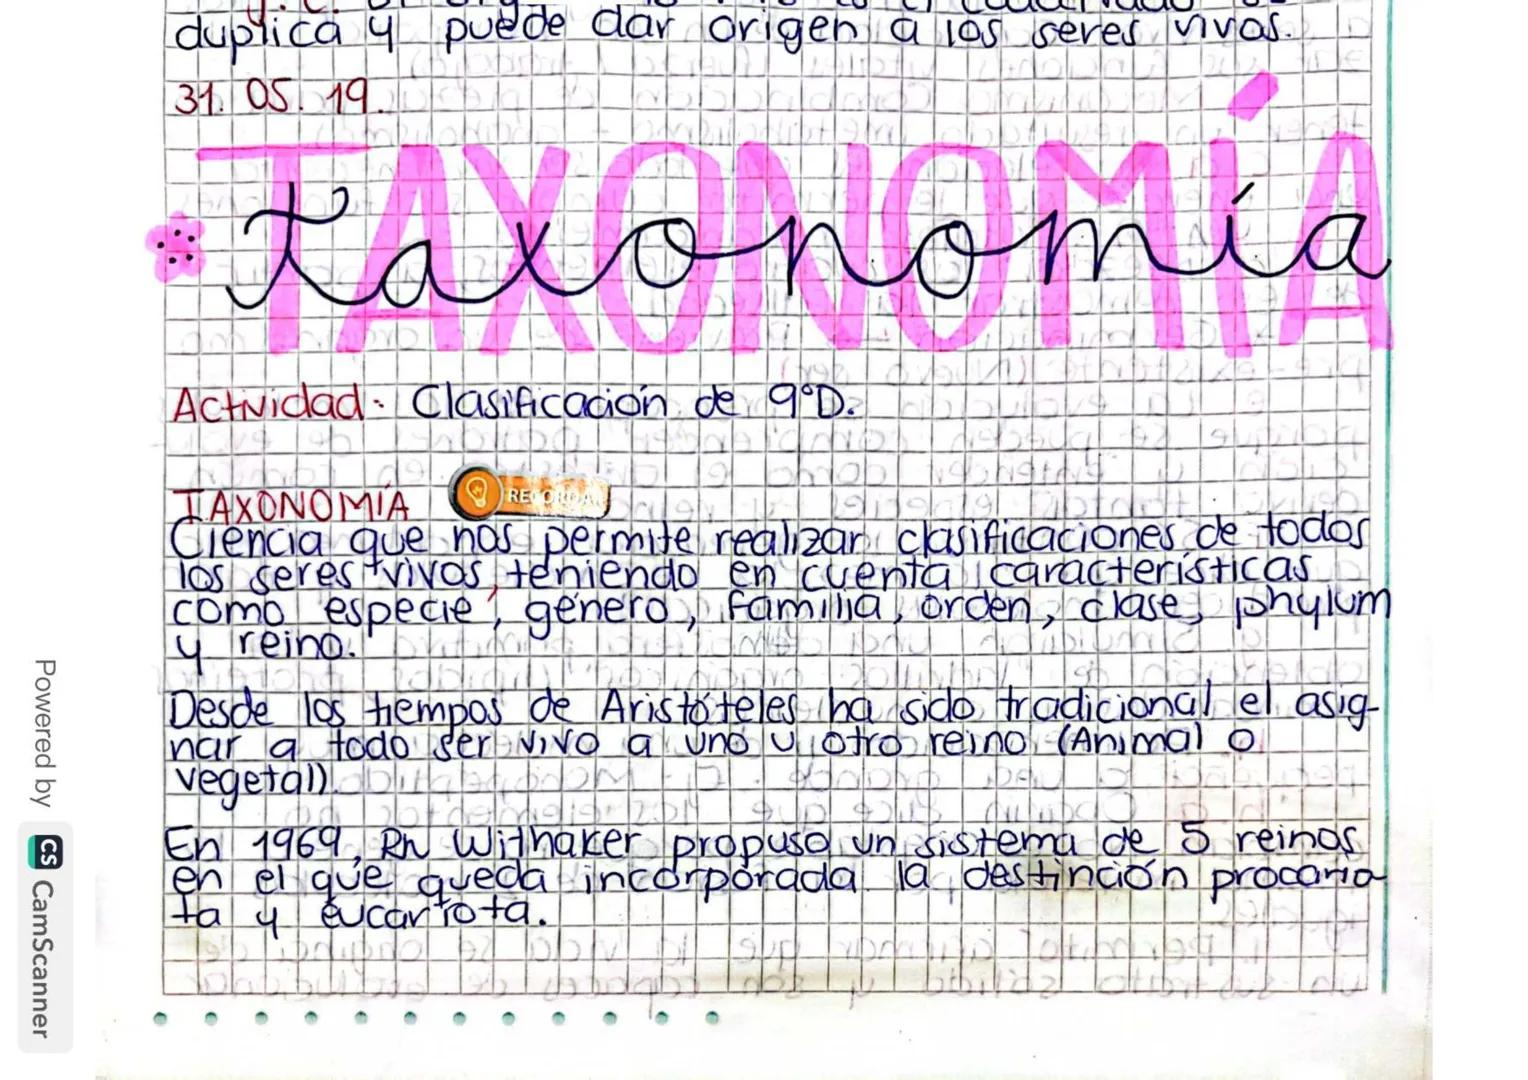 duplica y puede dar origen a los seres vivos.
31. 05. 19.
TAXONOMÍA
Taxonomía
Actividad: Clasificación de 9°D.
TAXONOMÍA
RECORDAR
Ciencia que nos permite realizar clasificaciones de todos
los seres vivos, teniendo en cuenta características
como especie, género, familia, orden, clase, phylum
y reino.
Desde los tiempos de Aristóteles ha sido tradicional el asig-
nar a todo ser vivo a uno u otro reino (Animal o
vegetal).
En 1969, Rh Withaker propuso un sistema de 5 reinos
en el que queda incorporada la destinción procario-
ta y eucariota.
Powered by CS CamScanner